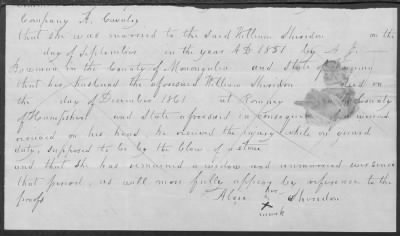 Company A. Cavalry
that she was married to the said William Sheridan on the
day of September in the year A.D. 1851 by A. J.
Bowman in the County of Monongalia and State of
that her husband the aforesaid William Sheridan died on
the day of December 1861 at Romney in County
of Hampshire and State aforesaid in consequence wound
received on his head, he received the injury while on guard
duty, supposed to be by the blow of a stone
and that she has remained a widow and unmarried ever since
that period, as will more fully appear by reference to the
proofs her
x Sheridan
mark